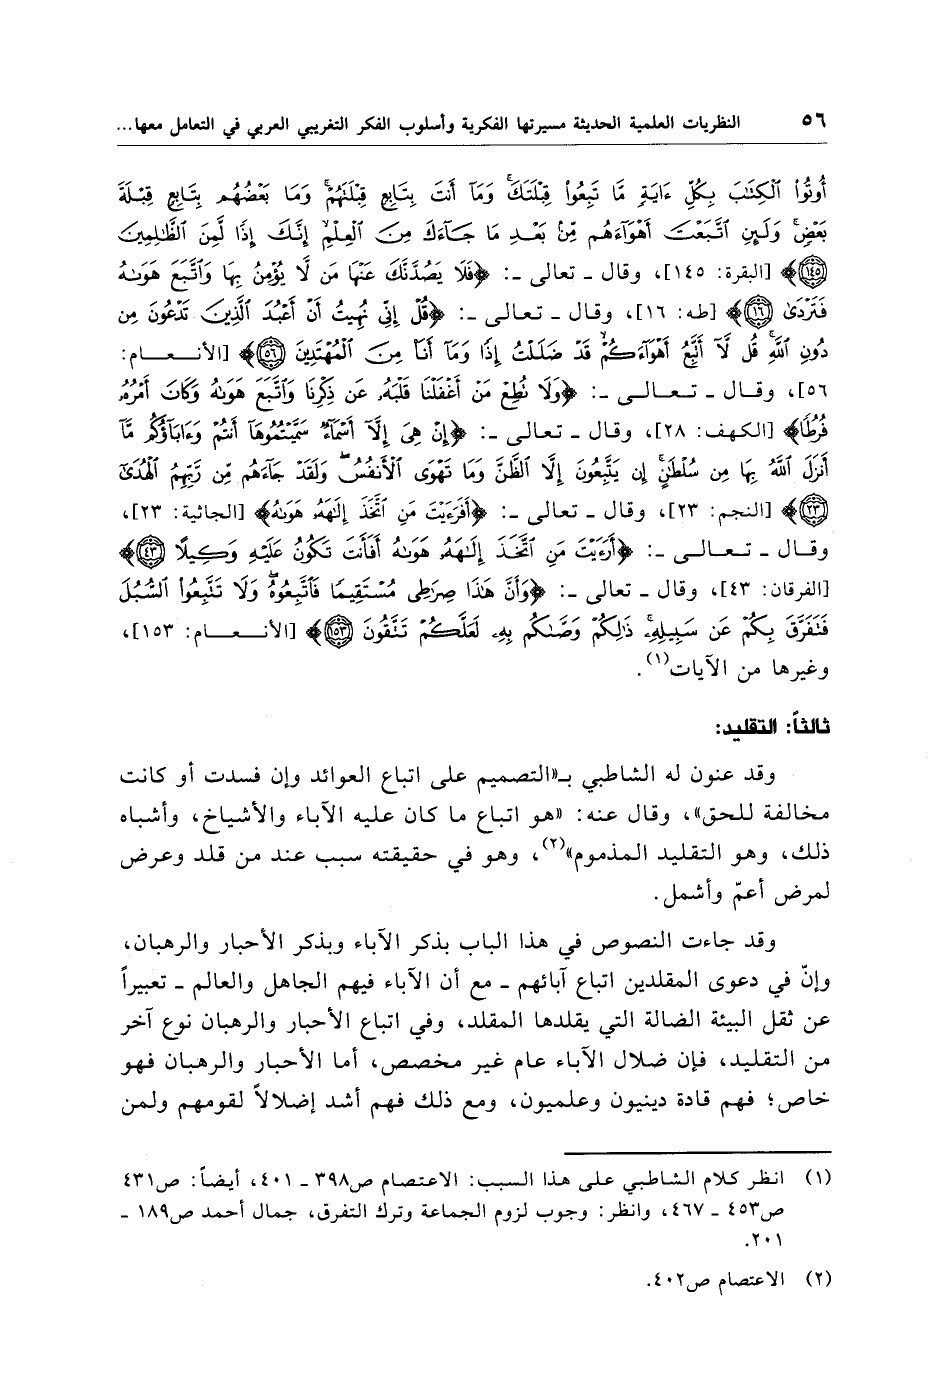 ٥٦ النظريات العلمية الحديثة مسيرتها الفكرية وأسلوب الفكر التغريبي العربي في التعامل معها...
أُوتُوا۟ ٱلْكِتَٰبَ بِكُلِّ ءَايَةٍ مَّا تَبِعُوا۟ قِبْلَتَكَ ۚ وَمَآ أَنتَ بِتَابِعٍ قِبْلَتَهُمْ ۚ وَمَا بَعْضُهُم بِتَابِعٍ قِبْلَةَ
بَعْضٍ ۚ وَلَئِنِ ٱتَّبَعْتَ أَهْوَآءَهُم مِّنۢ بَعْدِ مَا جَآءَكَ مِنَ ٱلْعِلْمِ ۙ إِنَّكَ إِذًا لَّمِنَ ٱلظَّٰلِمِينَ
(١٤٥)﴾ [البقرة: ١٤٥]، وقال ـ تعالى ـ: ﴿فَلَا يَصُدَّنَّكَ عَنْهَا مَن لَّا يُؤْمِنُ بِهَا وَٱتَّبَعَ هَوَىٰهُ
فَتَرْدَىٰ (١٦)﴾ [طه: ١٦]، وقال ـ تعالى ـ: ﴿قُلْ إِنِّى نُهِيتُ أَنْ أَعْبُدَ ٱلَّذِينَ تَدْعُونَ مِن
دُونِ ٱللَّهِ ۚ قُل لَّآ أَتَّبِعُ أَهْوَآءَكُمْ ۙ قَدْ ضَلَلْتُ إِذًا وَمَآ أَنَا۠ مِنَ ٱلْمُهْتَدِينَ (٥٦)﴾ [الأنعام:
٥٦]، وقال ـ تعالى ـ: ﴿وَلَا تُطِعْ مَنْ أَغْفَلْنَا قَلْبَهُۥ عَن ذِكْرِنَا وَٱتَّبَعَ هَوَىٰهُ وَكَانَ أَمْرُهُۥ
فُرُطًا﴾ [الكهف: ٢٨]، وقال ـ تعالى ـ: ﴿إِنْ هِىَ إِلَّآ أَسْمَآءٌ سَمَّيْتُمُوهَآ أَنتُمْ وَءَابَآؤُكُم مَّآ
أَنزَلَ ٱللَّهُ بِهَا مِن سُلْطَٰنٍ ۚ إِن يَتَّبِعُونَ إِلَّا ٱلظَّنَّ وَمَا تَهْوَى ٱلْأَنفُسُ ۖ وَلَقَدْ جَآءَهُم مِّن رَّبِّهِمُ ٱلْهُدَىٰٓ
(٢٣)﴾ [النجم: ٢٣]، وقال ـ تعالى ـ: ﴿أَفَرَءَيْتَ مَنِ ٱتَّخَذَ إِلَٰهَهُۥ هَوَىٰهُ﴾ [الجاثية: ٢٣]،
وقال ـ تعالى ـ: ﴿أَرَءَيْتَ مَنِ ٱتَّخَذَ إِلَٰهَهُۥ هَوَىٰهُ أَفَأَنتَ تَكُونُ عَلَيْهِ وَكِيلًا (٤٣)﴾
[الفرقان: ٤٣]، وقال ـ تعالى ـ: ﴿وَأَنَّ هَٰذَا صِرَٰطِى مُسْتَقِيمًا فَٱتَّبِعُوهُ ۖ وَلَا تَتَّبِعُوا۟ ٱلسُّبُلَ
فَتَفَرَّقَ بِكُمْ عَن سَبِيلِهِۦ ۚ ذَٰلِكُمْ وَصَّىٰكُم بِهِۦ لَعَلَّكُمْ تَتَّقُونَ (١٥٣)﴾ [الأنعام: ١٥٣]،
وغيرها من الآيات(١).
ثالثاً: التقليد:
وقد عنون له الشاطبي بـ«التصميم على اتباع العوائد وإن فسدت أو كانت
مخالفة للحق»، وقال عنه: «هو اتباع ما كان عليه الآباء والأشياخ، وأشباه
ذلك، وهو التقليد المذموم»(٢)، وهو في حقيقته سبب عند من قلد وعرض
لمرض أعمّ وأشمل.
وقد جاءت النصوص في هذا الباب بذكر الآباء وبذكر الأحبار والرهبان،
وإنّ في دعوى المقلدين اتباع آبائهم ـ مع أن الآباء فيهم الجاهل والعالم ـ تعبيراً
عن ثقل البيئة الضالة التي يقلدها المقلد، وفي اتباع الأحبار والرهبان نوع آخر
من التقليد، فإن ضلال الآباء عام غير مخصص، أما الأحبار والرهبان فهو
خاص؛ فهم قادة دينيون وعلميون، ومع ذلك فهم أشد إضلالاً لقومهم ولمن
(١) انظر كلام الشاطبي على هذا السبب: الاعتصام ص٣٩٨ ـ ٤٠١، أيضاً: ص٤٣١
ص٤٥٣ ـ ٤٦٧، وانظر: وجوب لزوم الجماعة وترك التفرق، جمال أحمد ص١٨٩ ـ
٢٠١.
(٢) الاعتصام ص٤٠٢.